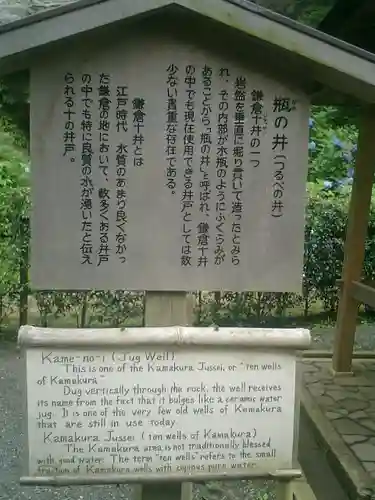 瓶の井(つるべの井)
鎌倉十井の一つ
岩盤を垂直に掘り貫いて造ったとみら
れ、その内部が水瓶のようにふくらみが
あることから「瓶の井」と呼ばれ、鎌倉十井
の中でも現在使用できる井戸としては数
少ない貴重な井戸である。
鎌倉十井とは
江戸時代 水質のあまり良くなかっ
た鎌倉の地において、数多くある井戸
の中でも特に良質の水が湧いたと伝え
られる十の井戸。
Kame-no-i (Jug Well)
This is one of the Kamakura Jussei, or "ten wells
of Kamakura"
Dug vertically through the rock, the well receives
its name from the fact that it bulges like a ceramic water
jug. It is one of the very few old wells of Kamakura
that are still in use today.
Kamakura Jussei (ten wells of Kamakura)
The Kamakura area is not traditionally blessed
with good water. The term "ten wells" refers to the small
fraction of Kamakura wells with copious pure water.